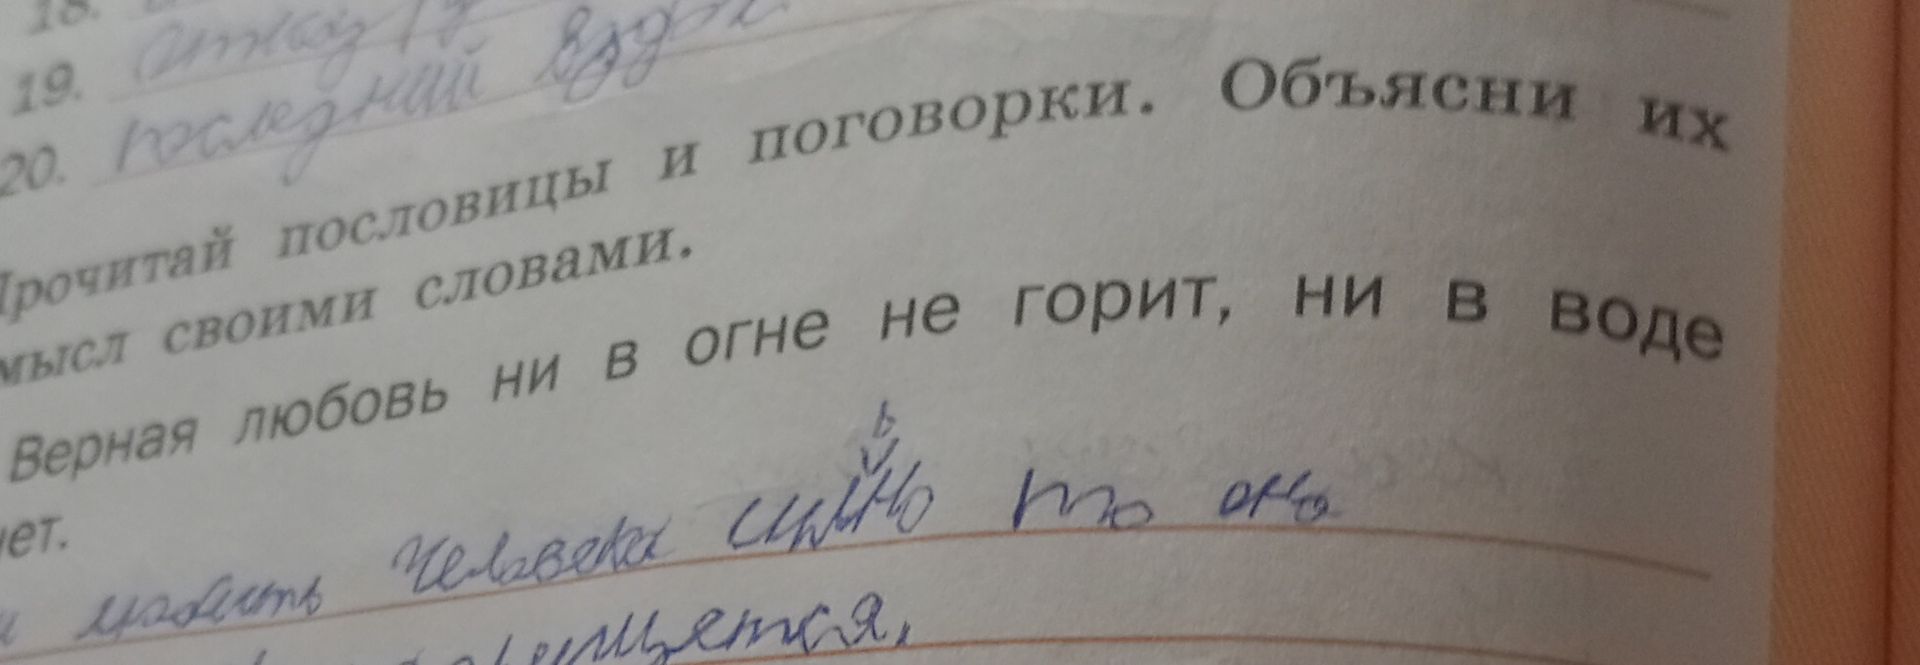 18.
19.
20. последний вздох
Прочитай пословицы и поговорки. Объясни их
мысл своими словами.
Верная любовь ни в огне не горит, ни в воде
нет.
любить человека сильно то она